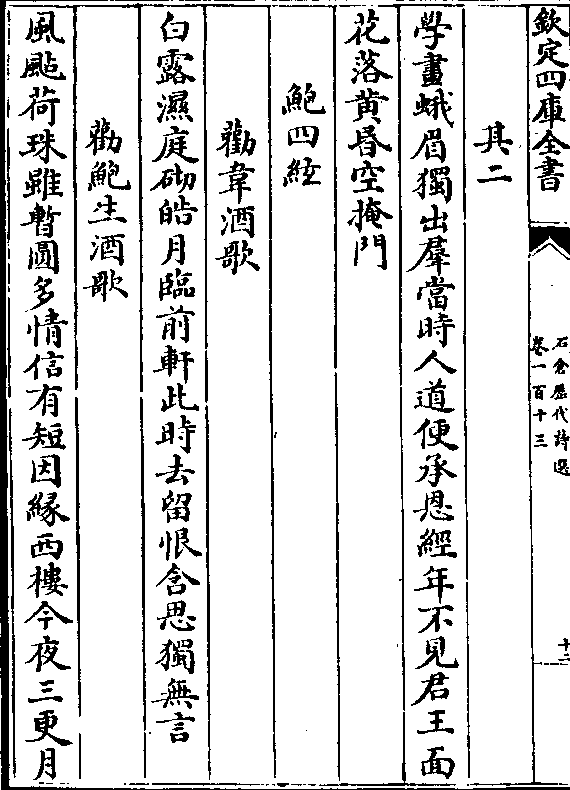 欽定四庫全書
石倉歷代詩選
卷一百十三
十二
其二
學畫蛾眉獨出羣當時人道便承恩經年不見君王面
花落黃昏空掩門
鮑四絃
勸韋酒歌
白露濕庭砌皓月臨前軒此時去留恨含思獨無言
勸鮑生酒歌
風颭荷珠雖暫圓多情信有短因緣西樓今夜三更月